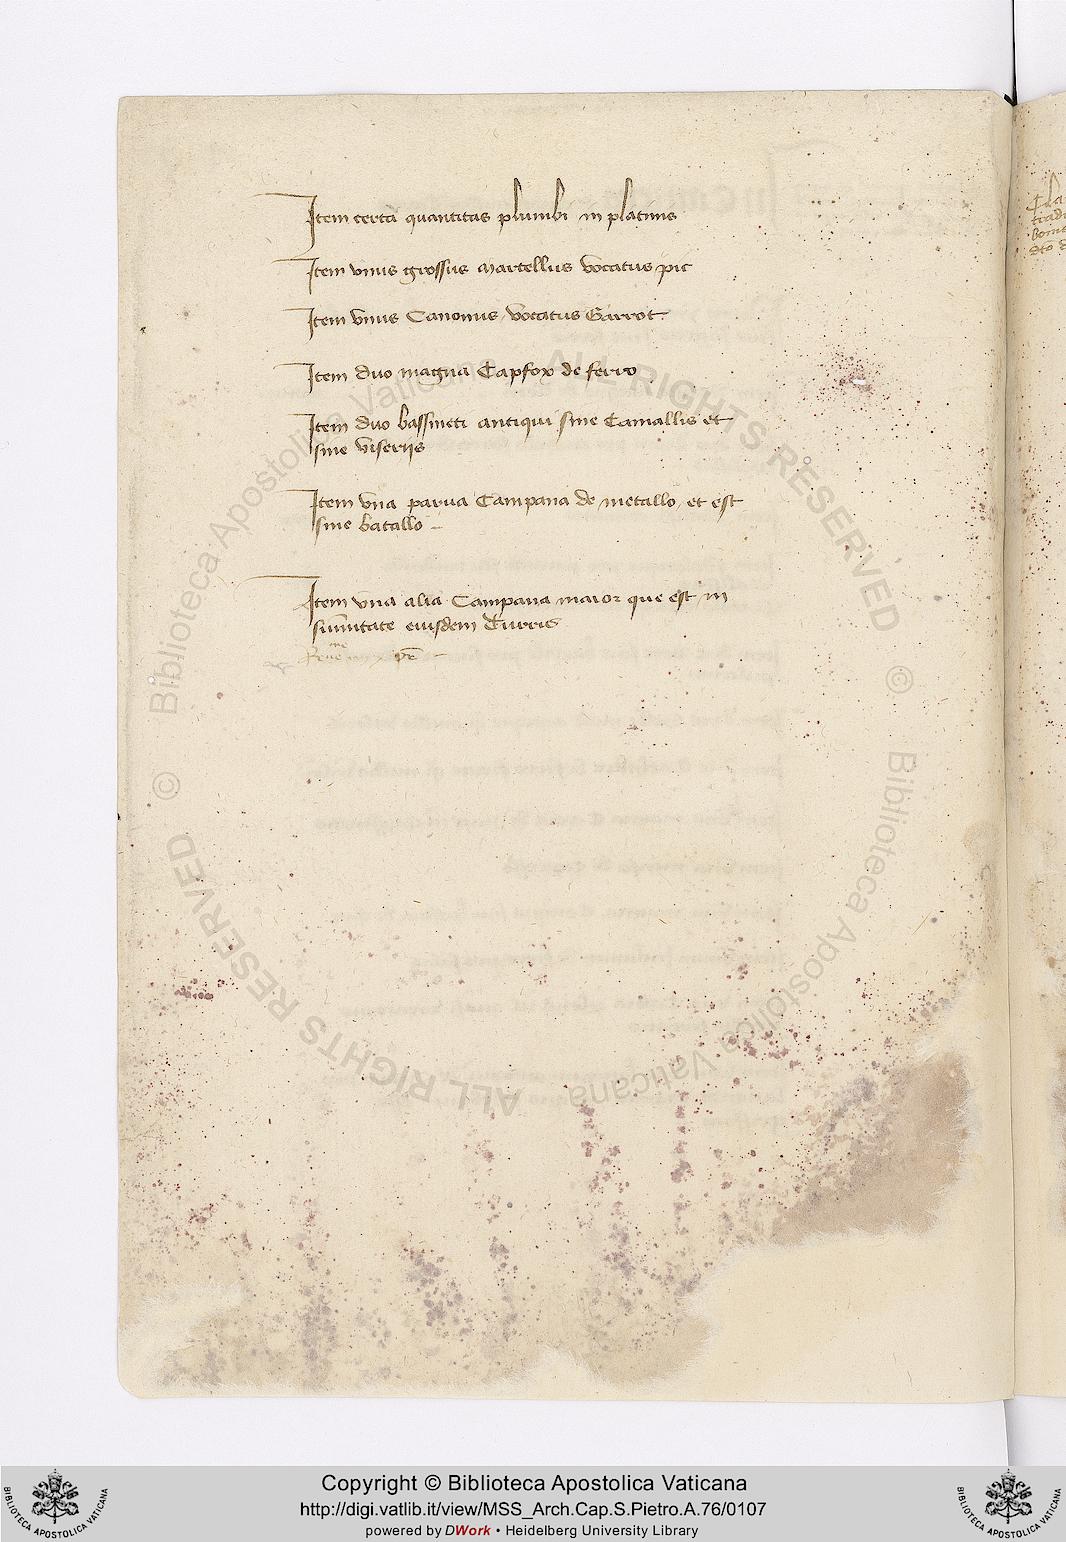 Item certa quantitas plumbi in platinis
Item unus grossus martellus vocatus pic
Item unus Canonus vocatus Garrot
Item duo magna Capfox de ferro
Item duo bassineti antiqui sine Camallis et
sine viseriis
Item una parva Campana de metallo et est
sine batallo
Item una alia Campana maior que est in
sumitate eiusdem Turris
© Biblioteca Apostolica Vaticana ALL RIGHTS RESERVED
© Biblioteca Apostolica Vaticana ALL RIGHTS RESERVED
Copyright © Biblioteca Apostolica Vaticana
http://digi.vatlib.it/view/MSS_Arch.Cap.S.Pietro.A.76/0107
powered by DWork • Heidelberg University Library
BIBLIOTECA APOSTOLICA VATICANA
BIBLIOTECA APOSTOLICA VATICANA